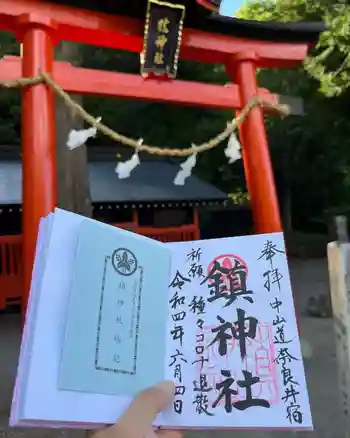 鎮神社
奉拝 中山道奈良井宿
鎮神社
祈願 種々コロナ退散
令和四年六月四日
鎮神社略記